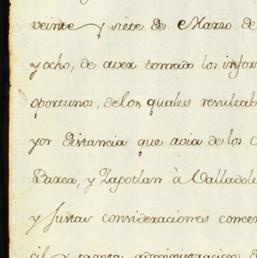 veinte y siete de Marzo de
y ocho, de aver tomado los infor
oportunos, de los quales resultab
yor distancia que avia de los C
Parea, y Zapotlan à Valladol
y Justas consideraciones concer
cil y pronta administracion